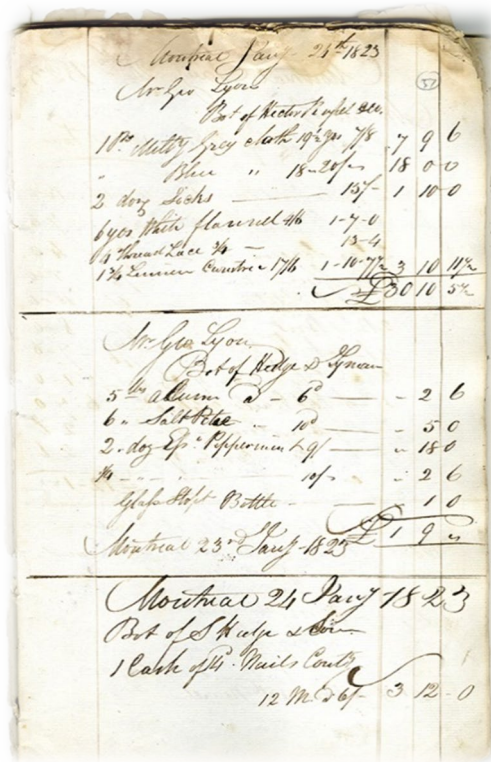 Montreal Jany 24th 1823
57
Mr Geo Lyon
Bot of Hector Russel & Co.
1 Ps Milty Grey cloth 19½ yds 7/8 7 9 6
" Blue " 18 - 20/- 18 0 0
2 doz Socks 15/- 1 10 0
6 yds White flannel 4/6 1-7-0
4 Thread Lace 3/4 - 13-4
1¾ Linnen Cambric 17/6 1-10-7½ 3 10 11½
£30 10 5½
Mr Geo Lyon
Bot of Hedge & Lyman
5 lbs Alum a 6d - 2 6
6 " Salt Petre " 10d " 5 0
2 " doz Ess " Peppermint 9/ " 18 0
¼ - - - 10/- " 2 6
Glass Stopt Bottle - 1 0
£ 1 9 "
Montreal 23rd Jany 1823
Montreal 24 Jany 1823
Bot of S & Son
1 Cask of Nails Contg
12 M @ 6/- 3 12 0